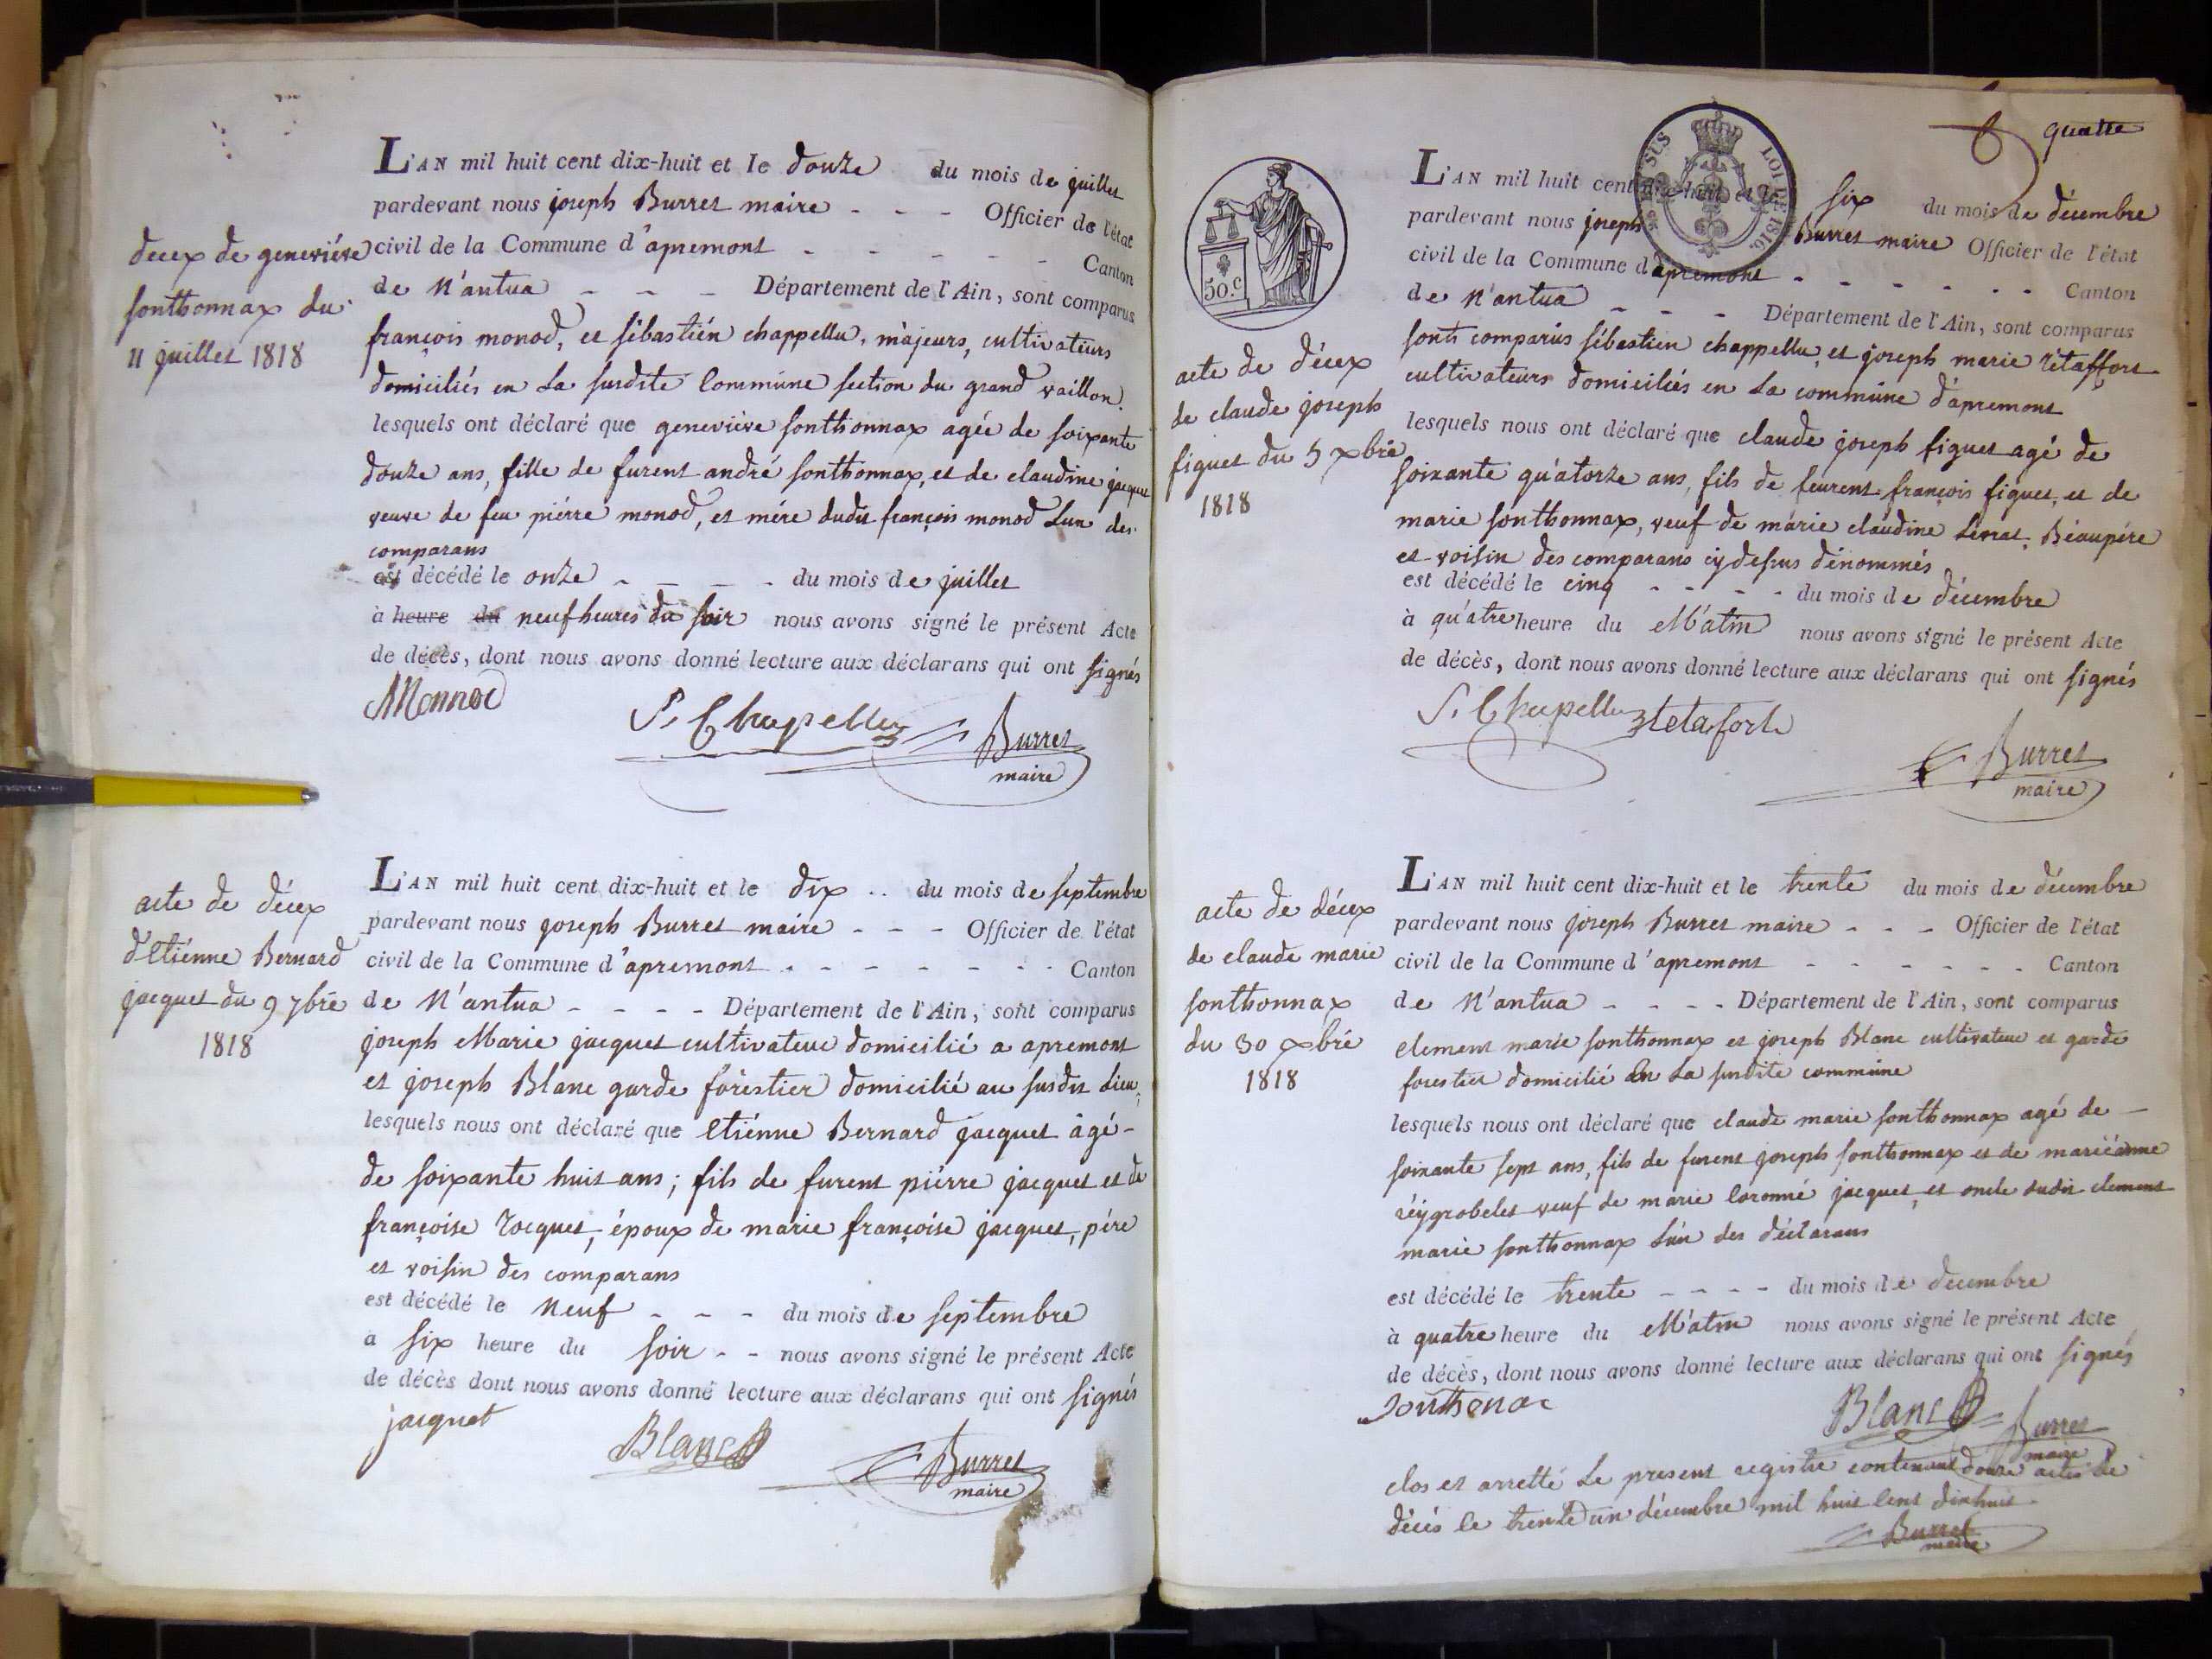 decex de geneviéve
sonthonnax du
11 juillet 1818
L'AN mil huit cent dix-huit et le douze du mois de juillet
pardevant nous joseph Burret maire - - - Officier de l'état
civil de la Commune d'apremont - - - - - Canton
de N'antua - - - Département de l'Ain, sont comparus
françois monod, et sébastién chappellu, majeurs, cultivateurs
domiciliés en la susdite Commune section du grand vaillon.
lesquels ont déclaré que geneviève sonthonnax agée de soixante
douze ans, fille de furent andré sonthonnax, et de claudine jacquet
veuve de feu piérre monod, et mére dudit françois monod l'un des
comparans
est décédé le onze - - - - du mois de juillet
à heure du neuf heures du soir nous avons signé le présent Acte
de décès, dont nous avons donné lecture aux déclarans qui ont signés
Monnod
S. Chapellu
Burret
maire
acte de décex
d'Etiénne Bernard
jacquet du 9 7bre
1818
L'AN mil huit cent dix-huit et le dix .. du mois de septembre
pardevant nous joseph Burret maire - - - Officier de l'état
civil de la Commune d'apremont - - - - - - - Canton
de N'antua - - - - Département de l'Ain, sont comparus
joseph Marie jacquet cultivateur domicilié a apremont
et joseph Blanc garde forestier domicilié au susdit lieu,
lesquels nous ont déclaré que Etiénne Bernard jacquet âgé -
de soixante huit ans; fils de furent piérre jacquet et de
françoise rocquet, époux de marie françoise jacquet, pére
et voisin des comparans
est décédé le Neuf - - - du mois de septembre
a six heure du soir - - nous avons signé le présent Acte
de décès dont nous avons donné lecture aux déclarans qui ont signés
jacquet
Blanc
Burret
maire
quatre
50.c
LOI DE 1816.
acte de décex
de claude joseph
figuet du 5 xbre
1818
L'AN mil huit cent dix-huit et le six du mois de décembre
pardevant nous joseph Burret maire Officier de l'état
civil de la Commune d'apremont - - - - - - Canton
de N'antua - - - Département de l'Ain, sont comparus
sont comparus sébastien chappellu, et joseph marie tétaffort
cultivateurs domiciliés en la commune d'apremont
lesquels nous ont déclaré que claude joseph figuet agé de
soixante quatorze ans, fils de feurent françois figuet, et de
marie sonthonnax, veuf de marie claudine Lénat, Béaupére
et voisin des comparans cy dessus dénommés
est décédé le cinq - - - - du mois de décembre
à quatre heure du Matin nous avons signé le présent Acte
de décès, dont nous avons donné lecture aux déclarans qui ont signés
S. Chapellu
tetafort
Burret
maire
acte de décex
de claude marie
sonthonnax
du 30 xbre
1818
L'AN mil huit cent dix-huit et le trente du mois de décembre
pardevant nous joseph Burret maire - - - Officier de l'état
civil de la Commune d'apremont - - - - - - Canton
de N'antua - - - - Département de l'Ain, sont comparus
clement marie sonthonnax et joseph Blanc cultivateur et garde
forestier domicilié En la susdite commune
lesquels nous ont déclaré que claude marie sonthonnax agé de -
soixante sept ans, fils de furent joseph sonthonnax et de mariéanne
réygrobelet veuf de marie loronné jacquet, et oncle dudit clement
marie sonthonnax l'un des déclarans
est décédé le trente - - - - du mois de decembre
à quatre heure du Matin nous avons signé le présent Acte
de décès, dont nous avons donné lecture aux déclarans qui ont signés
Southonax
Blanc
Burret
maire
clos et arretté le present registre contenant douze actes de
décés le trente un décembre mil huit cent dixhuit
Burret
maire